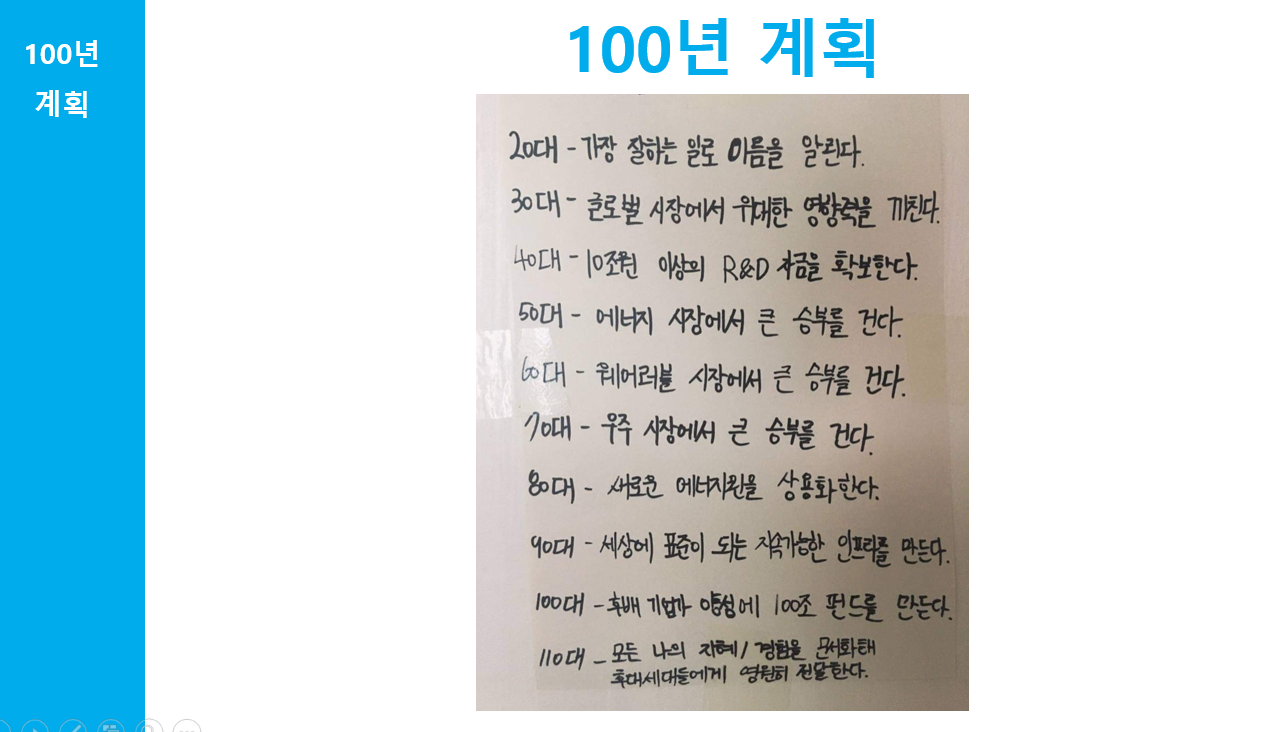 100년
계획
100년 계획
20대 - 가장 잘하는 일로 이름을 알린다.
30대 - 글로벌 시장에서 위대한 영향력을 끼친다.
40대 - 10조원 이상의 R&D 자금을 확보한다.
50대 - 에너지 시장에서 큰 승부를 건다.
60대 - 웨어러블 시장에서 큰 승부를 건다.
70대 - 우주 시장에서 큰 승부를 건다.
80대 - 새로운 에너지원을 상용화한다.
90대 - 세상에 표준이 되는 지속가능한 인프라를 만든다.
100대 - 후배 기업가 양성에 100조 펀드를 만든다.
110대 - 모든 나의 지혜/경험을 문서화해
후대세대들에게 영원히 전달한다.